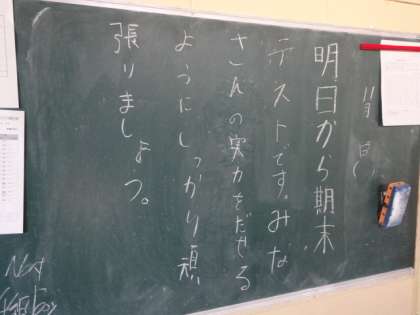 明日から期末
テストです。みな
さんの実力をだせる
ようにしっかり頑
張りましょう。
Next